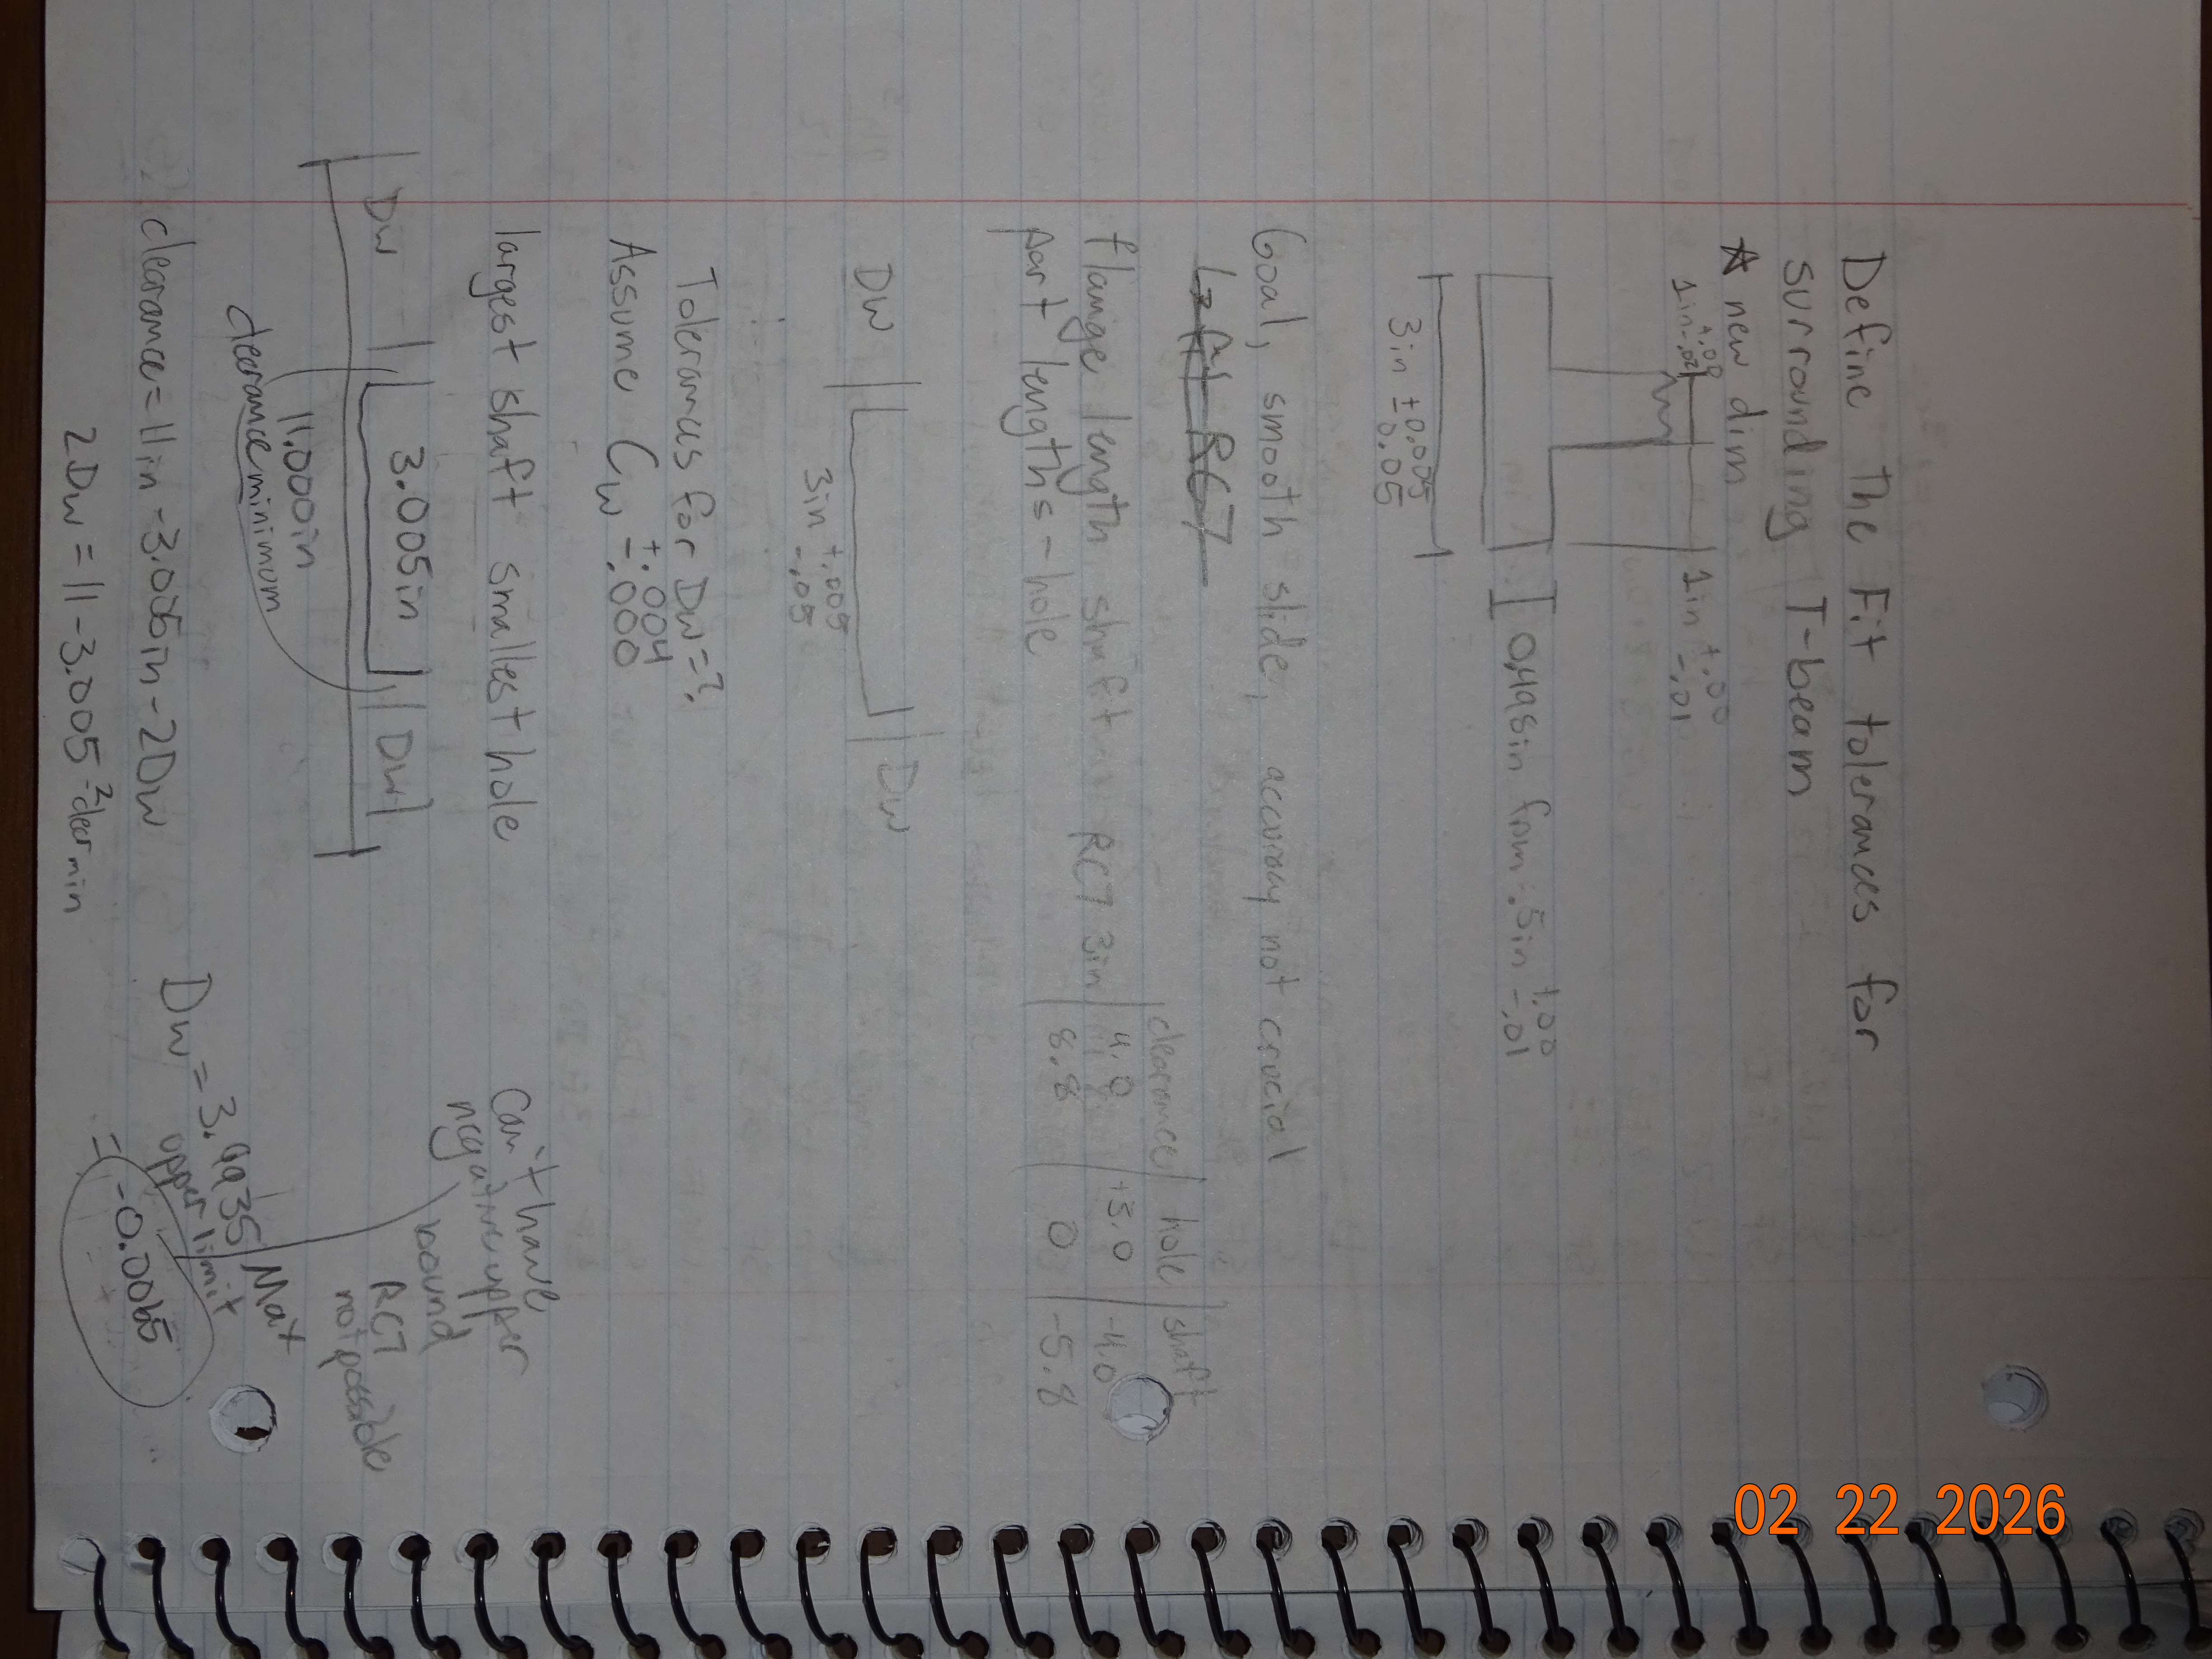 Define the Fit tolerances for
surrounding T-beam
☆ new dim
1in +.00 -.02
1in +.00 -.01
0.498in from .5in +.00 -.01
3in ±0.005 0.05
Goal, smooth slide, accuracy not crucial
RC7
clearance | hole | shaft
flange length shaft RC7 3in | 4.0 | +3.0 | -4.0
part lengths - hole | 8.8 | 0 | -5.8
Dw Dw
3in +.005 -.05
Tolerances for Dw=?
Assume Cw +.004 -.000
largest shaft smallest hole
Can't have
negative upper
bound
RC7
not possible
Dw 3.005in Dw
11.000in
clearance minimum
Dw = 3.9935 Max
upper limit
clearance = 11in - 3.005in - 2Dw
= -0.0065
2Dw = 11 - 3.005 - 2 clear min
02 22 2026